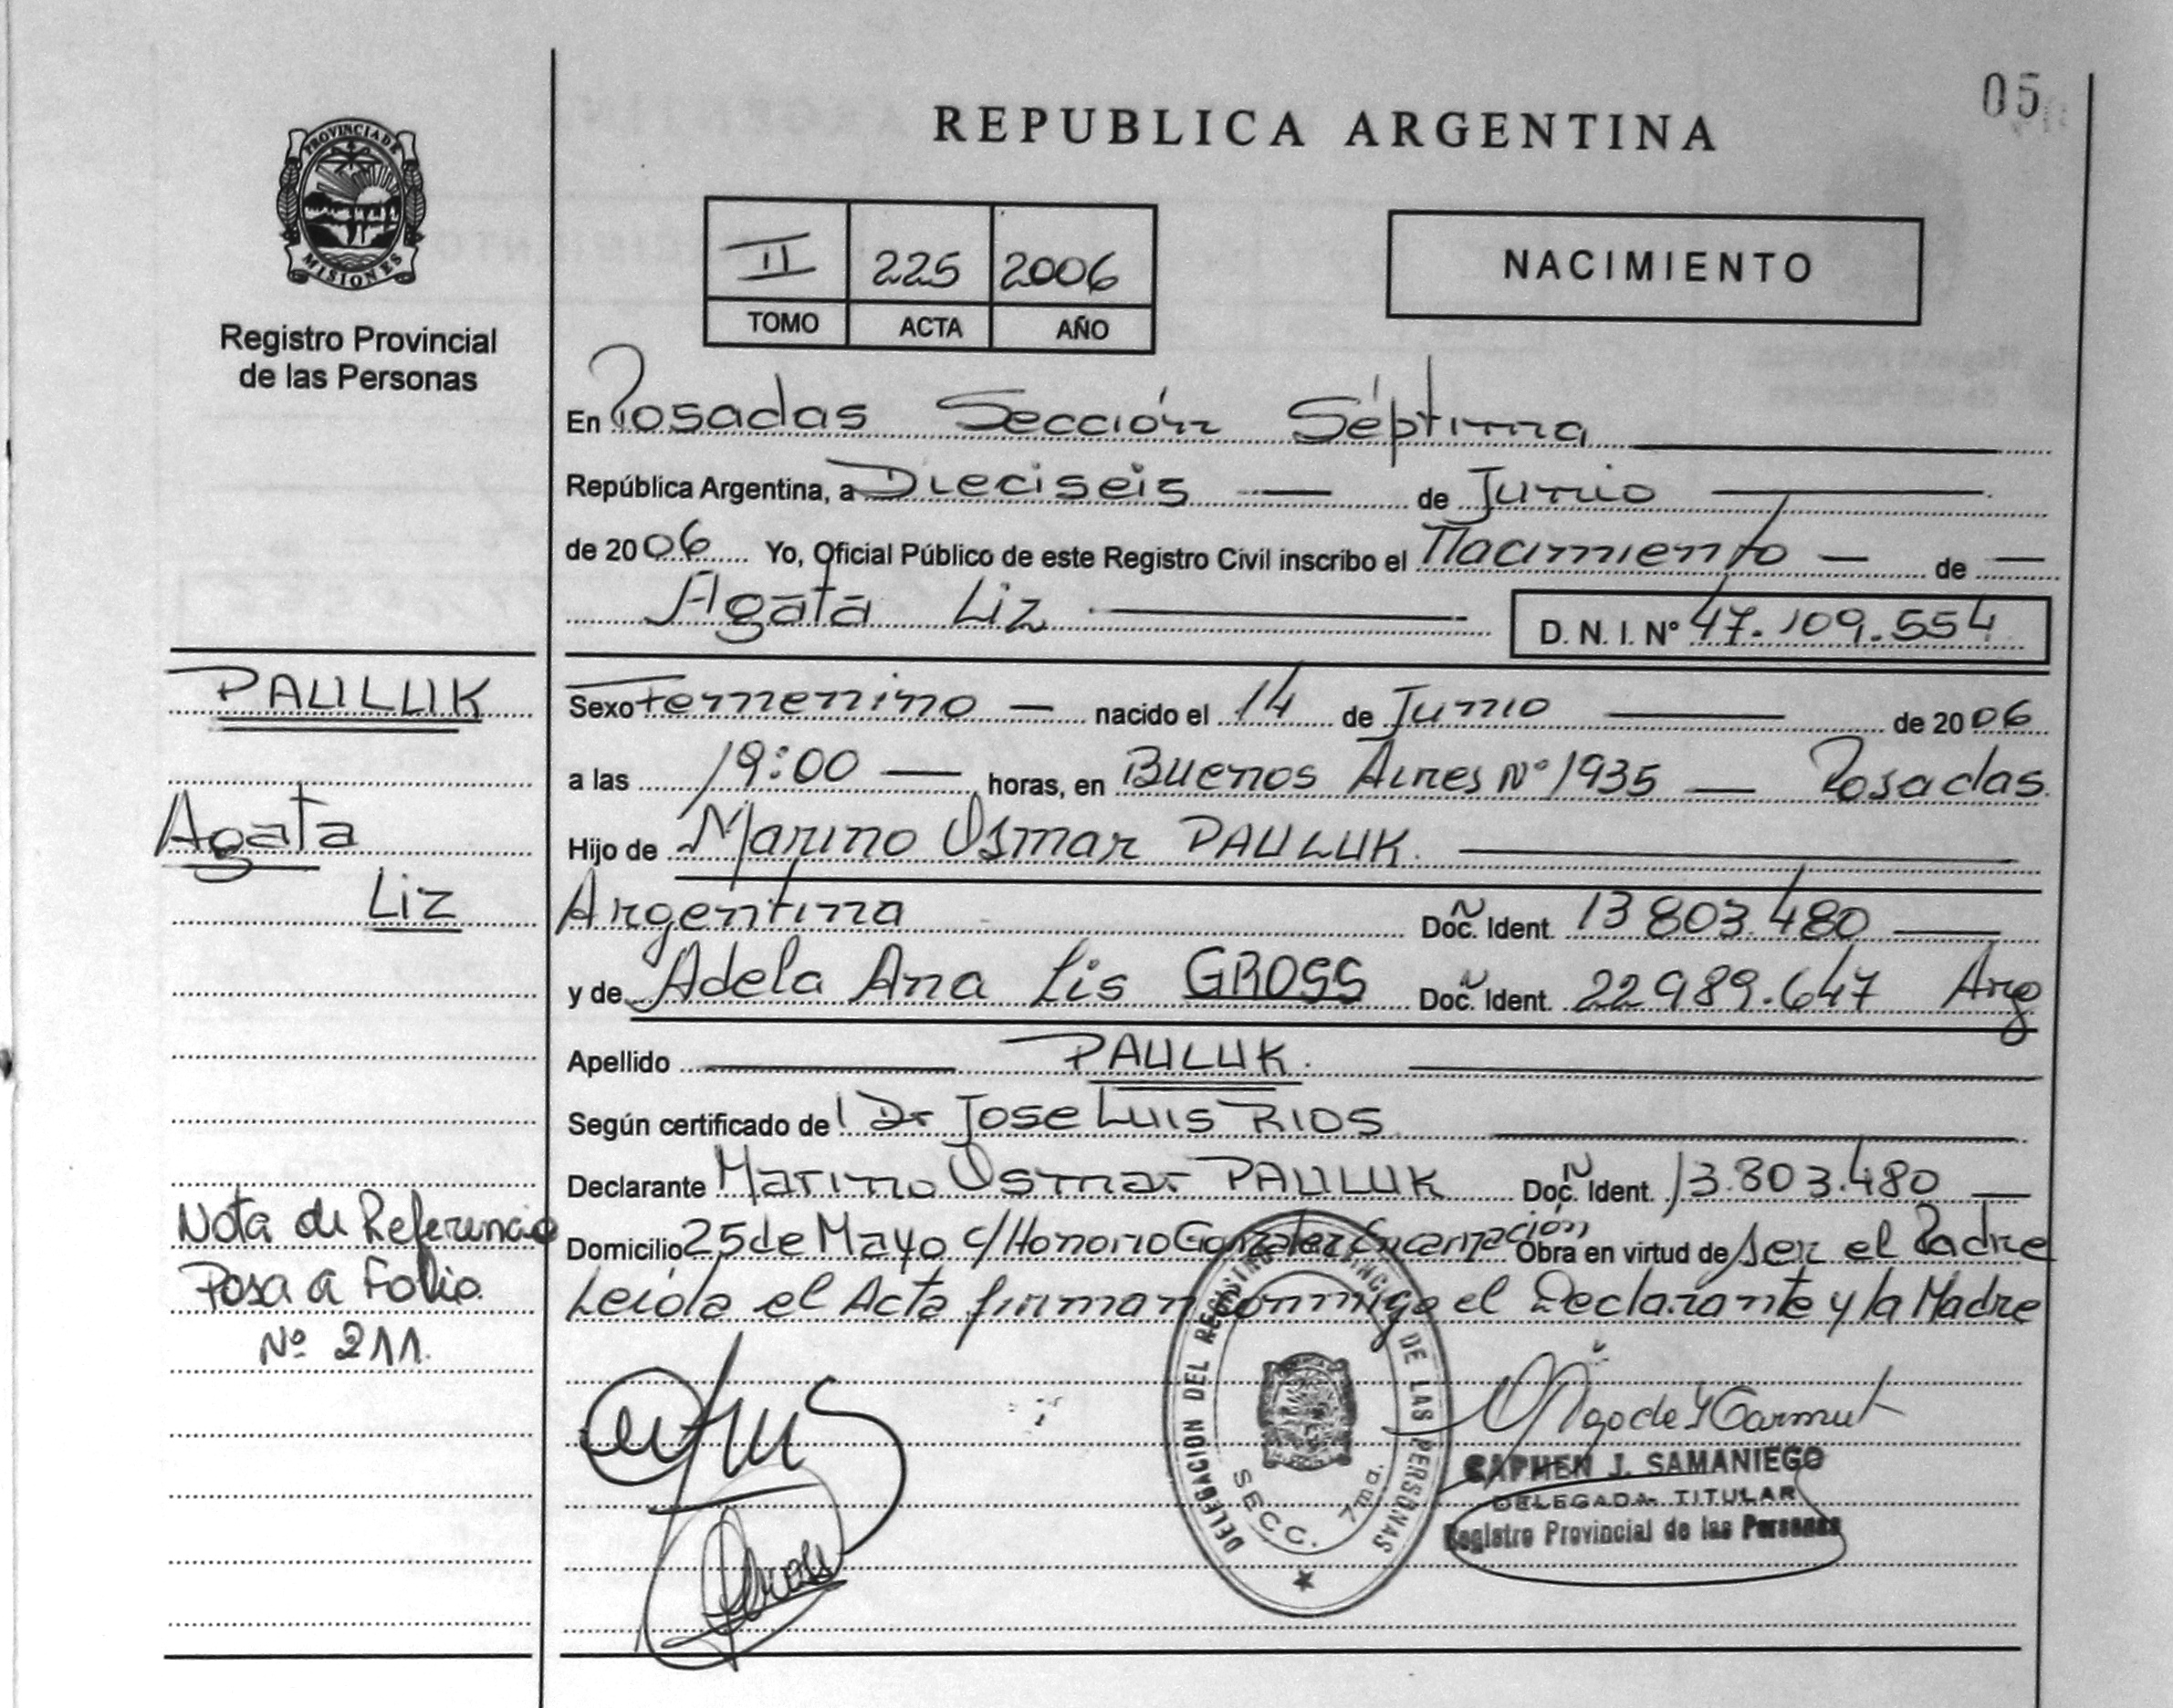 05
REPUBLICA ARGENTINA
PROVINCIA DE
MISIONES
Registro Provincial
de las Personas
II 225 2006
TOMO ACTA AÑO
NACIMIENTO
En Posadas Sección Séptima
República Argentina, a Dieciseis de Junio
de 2006 Yo, Oficial Público de este Registro Civil inscribo el Nacimiento de
Agata Liz D. N. I. Nº 47.109.554
PAULUK
Agata
Liz
Sexo Femenino nacido el 14 de Junio de 2006
a las 19:00 horas, en Buenos Aires Nº 1935 Posadas
Hijo de Marino Osmar PAULUK.
Argentina Doc. Ident. 13 803.480
y de Adela Ana Lis GROSS Doc. Ident. 22989.647 Arg
Apellido PAULUK.
Según certificado de l Dr Jose Luis RIOS
Declarante Marino Osmar PAULUK Doc. Ident. 13.803.480
Domicilio 25 de Mayo c/ Honorio Gonzalez Encarnación Obra en virtud de ser el Padre
Leida el Acta firman conmigo el Declarante y la Madre
Nota de Referencia
Pasa a Folio
Nº 211.
DELEGACION DEL REGISTRO PROVINCIAL DE LAS PERSONAS
SECC. 7ma.
CARMEN J. SAMANIEGO
DELEGADA TITULAR
Registro Provincial de las Personas